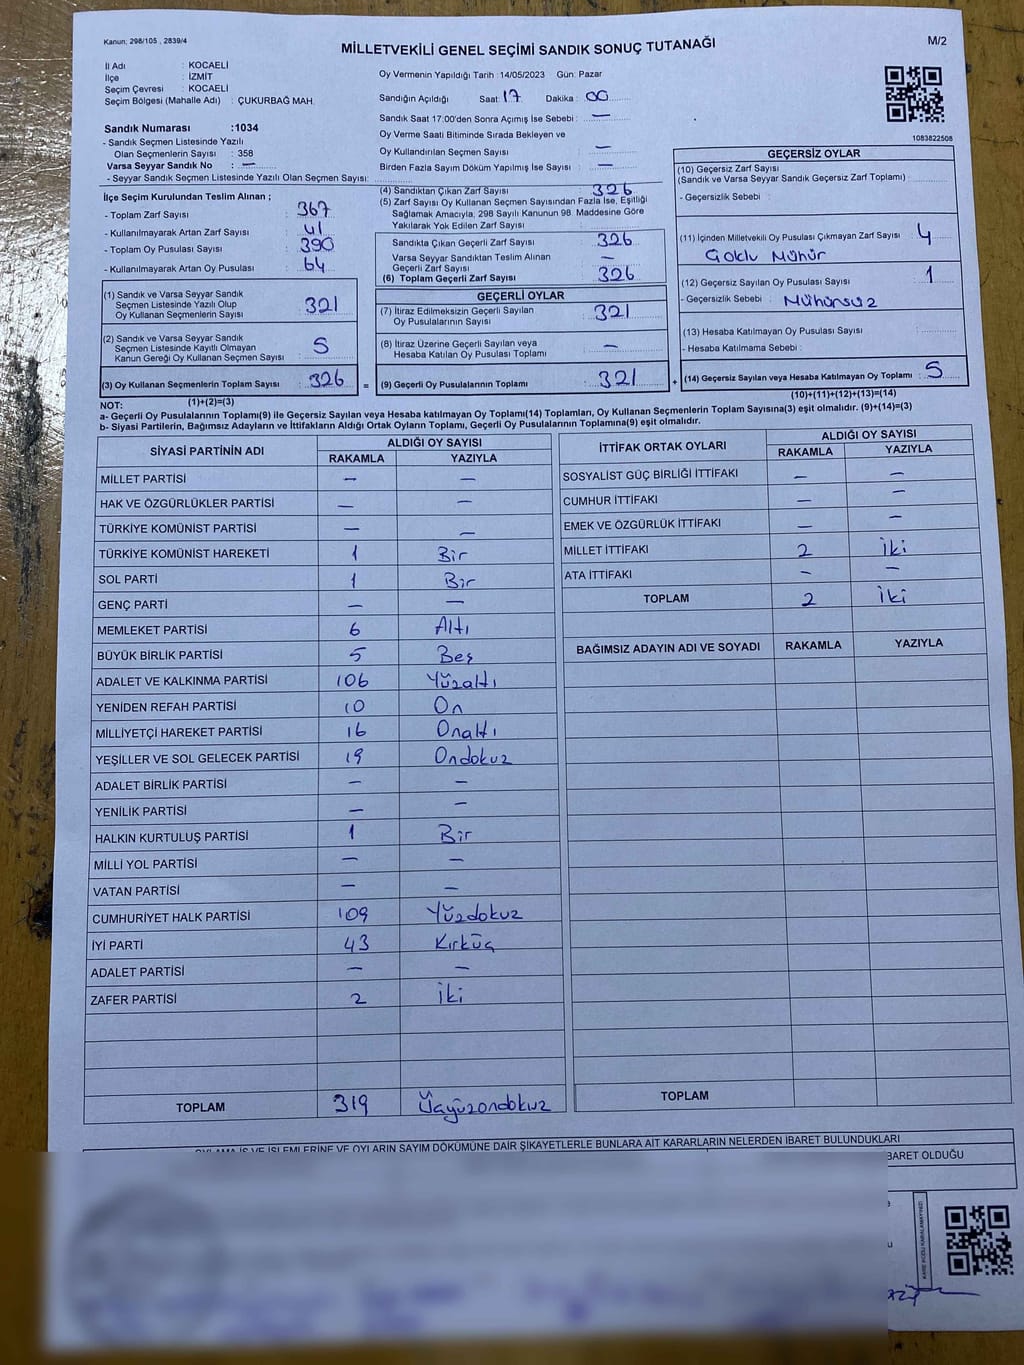 Kanun, 298/105 , 2839/4
MİLLETVEKİLİ GENEL SEÇİMİ SANDIK SONUÇ TUTANAĞI
M/2
İl Adı : KOCAELİ
İlçe : İZMİT
Seçim Çevresi : KOCAELİ
Seçim Bölgesi (Mahalle Adı) : ÇUKURBAĞ MAH.
Sandık Numarası :1034
- Sandık Seçmen Listesinde Yazılı
Olan Seçmenlerin Sayısı : 358
Varsa Seyyar Sandık No : —
- Seyyar Sandık Seçmen Listesinde Yazılı Olan Seçmen Sayısı:
Oy Vermenin Yapıldığı Tarih :14/05/2023 Gün: Pazar
Sandığın Açıldığı Saat 17 Dakika : 00
Sandık Saat 17:00'den Sonra Açımış İse Sebebi : —
Oy Verme Saati Bitiminde Sırada Bekleyen ve
Oy Kullandırılan Seçmen Sayısı —
Birden Fazla Sayım Döküm Yapılmış İse Sayısı : —
1083822508
İlçe Seçim Kurulundan Teslim Alınan ;
- Toplam Zarf Sayısı : 367
- Kullanılmayarak Artan Zarf Sayısı : 41
- Toplam Oy Pusulası Sayısı : 390
- Kullanılmayarak Artan Oy Pusulası : 64
(1) Sandık ve Varsa Seyyar Sandık
Seçmen Listesinde Yazılı Olup
Oy Kullanan Seçmenlerin Sayısı : 321
(2) Sandık ve Varsa Seyyar Sandık
Seçmen Listesinde Kayıtlı Olmayan
Kanun Gereği Oy Kullanan Seçmen Sayısı : 5
(3) Oy Kullanan Seçmenlerin Toplam Sayısı : 326
(1)+(2)=(3)
(4) Sandıktan Çıkan Zarf Sayısı : 326
(5) Zarf Sayısı Oy Kullanan Seçmen Sayısından Fazla İse, Eşitliği
Sağlamak Amacıyla, 298 Sayılı Kanunun 98. Maddesine Göre
Yakılarak Yok Edilen Zarf Sayısı :
Sandıkta Çıkan Geçerli Zarf Sayısı : 326
Varsa Seyyar Sandıktan Teslim Alınan
Geçerli Zarf Sayısı : —
(6) Toplam Geçerli Zarf Sayısı : 326
GEÇERLİ OYLAR
(7) İtiraz Edilmeksizin Geçerli Sayılan
Oy Pusulalarının Sayısı : 321
(8) İtiraz Üzerine Geçerli Sayılan veya
Hesaba Katılan Oy Pusulası Toplamı : —
= (9) Geçerli Oy Pusulalarının Toplamı : 321
GEÇERSİZ OYLAR
(10) Geçersiz Zarf Sayısı
(Sandık ve Varsa Seyyar Sandık Geçersiz Zarf Toplamı) :
- Geçersizlik Sebebi :
(11) İçinden Milletvekili Oy Pusulası Çıkmayan Zarf Sayısı : 4
Çoklu Mühür
(12) Geçersiz Sayılan Oy Pusulası Sayısı : 1
- Geçersizlik Sebebi : Mühürsüz
(13) Hesaba Katılmayan Oy Pusulası Sayısı :
- Hesaba Katılmama Sebebi :
+ (14) Geçersiz Sayılan veya Hesaba Katılmayan Oy Toplamı : 5
(10)+(11)+(12)+(13)=(14)
NOT:
a- Geçerli Oy Pusulalarının Toplamı(9) ile Geçersiz Sayılan veya Hesaba katılmayan Oy Toplamı(14) Toplamları, Oy Kullanan Seçmenlerin Toplam Sayısına(3) eşit olmalıdır. (9)+(14)=(3)
b- Siyasi Partilerin, Bağımsız Adayların ve İttifakların Aldığı Ortak Oyların Toplamı, Geçerli Oy Pusulalarının Toplamına(9) eşit olmalıdır.
SİYASİ PARTİNİN ADI ALDIĞI OY SAYISI
RAKAMLA YAZIYLA
MİLLET PARTİSİ — —
HAK VE ÖZGÜRLÜKLER PARTİSİ — —
TÜRKİYE KOMÜNİST PARTİSİ — —
TÜRKİYE KOMÜNİST HAREKETİ 1 Bir
SOL PARTİ 1 Bir
GENÇ PARTİ — —
MEMLEKET PARTİSİ 6 Altı
BÜYÜK BİRLİK PARTİSİ 5 Beş
ADALET VE KALKINMA PARTİSİ 106 Yüzaltı
YENİDEN REFAH PARTİSİ 10 On
MİLLİYETÇİ HAREKET PARTİSİ 16 Onaltı
YEŞİLLER VE SOL GELECEK PARTİSİ 19 Ondokuz
ADALET BİRLİK PARTİSİ — —
YENİLİK PARTİSİ — —
HALKIN KURTULUŞ PARTİSİ 1 Bir
MİLLİ YOL PARTİSİ — —
VATAN PARTİSİ — —
CUMHURİYET HALK PARTİSİ 109 Yüzdokuz
İYİ PARTİ 43 Kırküç
ADALET PARTİSİ — —
ZAFER PARTİSİ 2 İki
TOPLAM 319 Üçyüzondokuz
İTTİFAK ORTAK OYLARI ALDIĞI OY SAYISI
RAKAMLA YAZIYLA
SOSYALİST GÜÇ BİRLİĞİ İTTİFAKI — —
CUMHUR İTTİFAKI — —
EMEK VE ÖZGÜRLÜK İTTİFAKI — —
MİLLET İTTİFAKI 2 İki
ATA İTTİFAKI — —
TOPLAM 2 İki
BAĞIMSIZ ADAYIN ADI VE SOYADI RAKAMLA YAZIYLA
TOPLAM
OYLAMA İŞ VE İŞLEMLERİNE VE OYLARIN SAYIM DÖKÜMÜNE DAİR ŞİKAYETLERLE BUNLARA AİT KARARLARIN NELERDEN İBARET BULUNDUKLARI
BARET OLDUĞU
KARE KODU KARALAMAYINIZ!